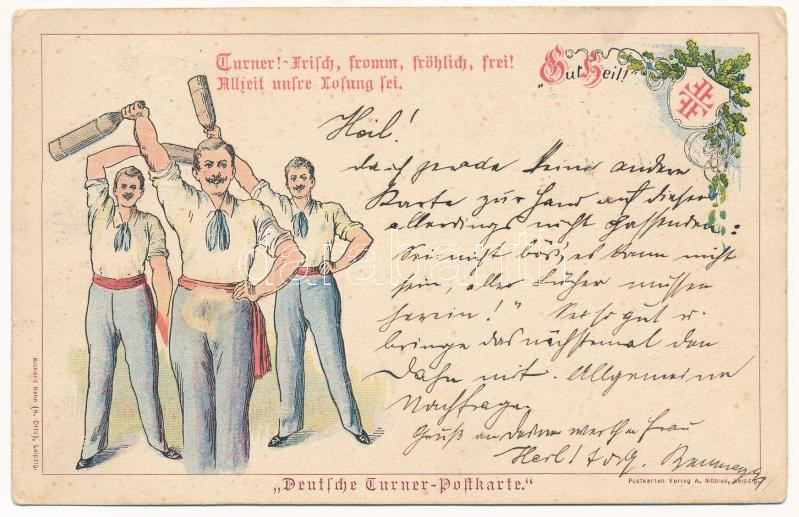 Turner!-Frisch, fromm, fröhlich, frei!
Allzeit unsre Losung sei.
„Gut Heil!"
Heil!
da ich gerade keine andere
Karte zur Hand auf dieser
allerdings nicht passenden:
Sei nicht bös, es kann nicht
sein, aller Bücher müssen
herein!" Sei so gut u.
bringe das nächstemal den
Dahn mit. Allgemeine
Nachfrage.
Gruß an deine werthe Frau
Heil!
darabanth
Richard Hahn (H. Otto), Leipzig.
„Deutsche Turner-Postkarte."
Postkarten Verlag A. Möbius, Leipzig.